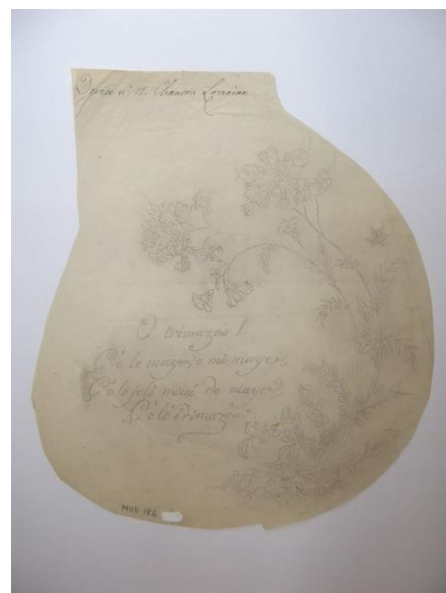 Devise nº 11. Chanson Lorraine.
O trimazos !
C'o lo maye, o mi maye,
C'o lo joli mois de maye
C'o lo trimazos.
MOD 186